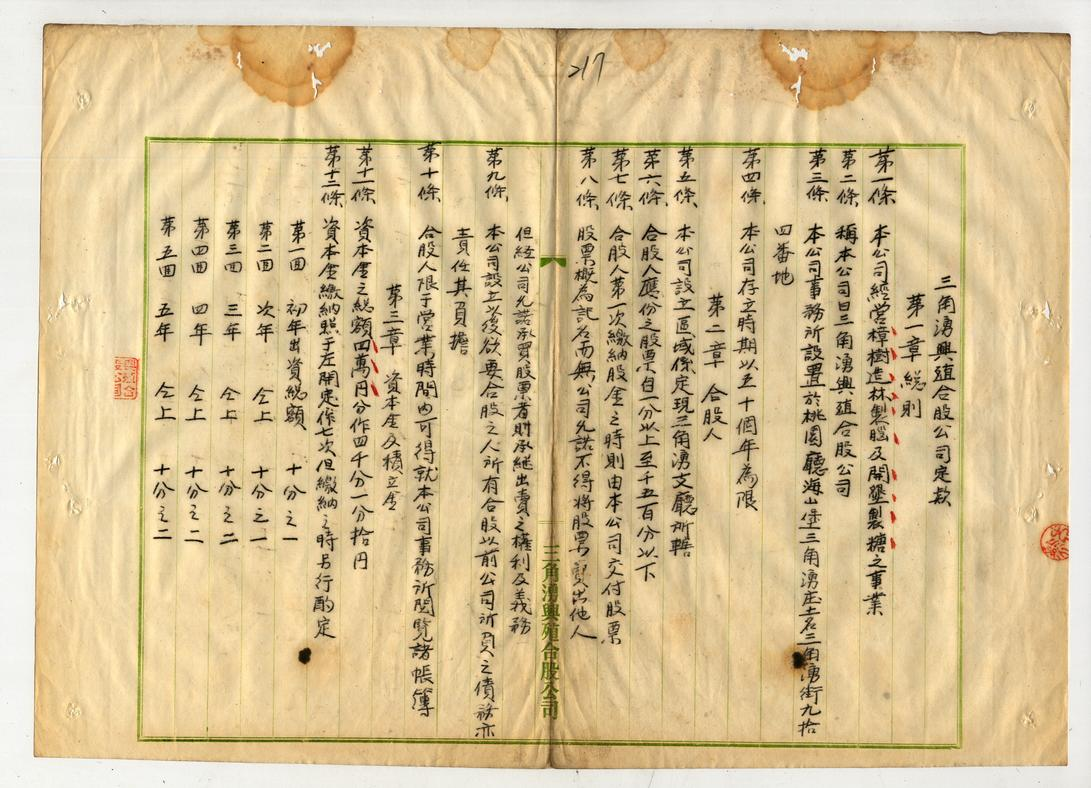 217
三角湧興殖合股公司定款
第一章 総則
第一條、本公司經營樟樹造林製腦及開墾製糖之事業
第二條、稱本公司曰三角湧興殖合股公司
第三條、本公司事務所設置於桃園廳海山堡三角湧庄土名三角湧街九拾
四番地
第四條、本公司存立時期以五十個年為限
第二章 合股人
第五條、本公司設立區域係定現三角湧支廳所轄
第六條、合股人應份之股票自一分以上至千五百分以下
第七條、合股人第一次繳納股金之時則由本公司交付股票
第八條、股票概為記名而無公司允諾不得將股票賣出他人
三角湧興殖合股公司
但經公司允諾承買股票者則承継出賣之權利及義務
第九條、本公司設立以後欲要合股之人所有合股以前公司所負之債務亦
責任其負擔
第十條、合股人限于營業時間內可得就本公司事務所閱覽諸帳簿
第三章 資本金及積立金
第十一條、資本金之総額四萬円分作四千分一分拾円
第十二條、資本金繳納照于左開定作七次但繳納之時另行酌定
第一回 初年出資総額 十分之一
第二回 次年 仝上 十分之一
第三回 三年 仝上 十分之二
第四回 四年 仝上 十分之二
第五回 五年 仝上 十分之二